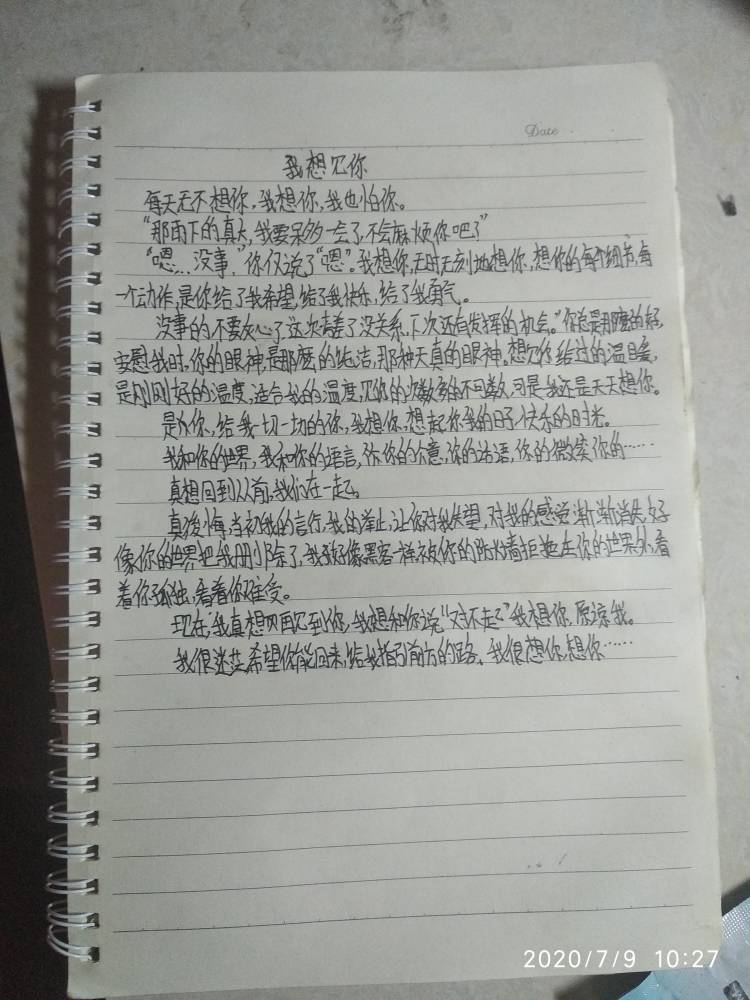 Date
我想见你
每天无不想你,我想你,我也怕你。
“那雨下的真大,我要呆多一会了,不会麻烦你吧了”
“嗯...没事,”你仅说了“嗯”。我想你,无时无刻地想你,想你的每个细节,每
一个动作,是你给了我希望,给了我快乐,给了我勇气。
没事的,不要灰心了,这次考差了没关系,下次还有发挥的机会。”你总是那麽的好,
安慰我时,你的眼神,是那麽的纯洁,那种天真的眼神。想你给过的温暖,
是刚刚好的温度,适合我的温度,见你的次数多的不可数,可是我还是天天想你。
是你,给我一切一切的你,我想你,想起你我的日子,快乐的时光。
我和你的世界,我和你的语言,你的介意,你的话语,你的微笑你的……
真想回到从前,我们在一起。
真後悔,当初我的言行,我的举止,让你对我失望,对我的感觉渐渐消失,好
像你的世界把我删除了,我好像黑客一样,被你的防火墙拒绝在你的世界外,看
着你孤独,看着你难受。
现在,我真想再见到你,我想和你说“对不起”我想你,原谅我。
我很迷茫,希望你能回来,给我指引前方的路,我很想你,想你……
2020/7/9 10:27